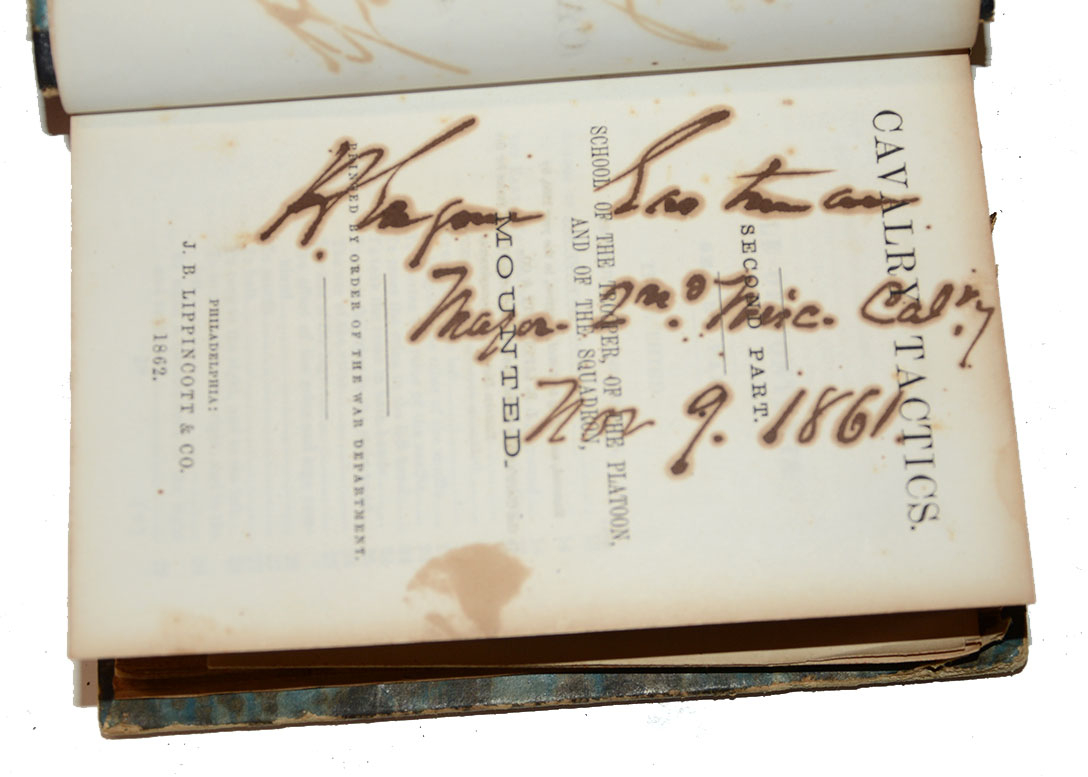 CAVALRY TACTICS.
SECOND PART.
SCHOOL OF THE TROOPER, OF THE PLATOON,
AND OF THE SQUADRON,
MOUNTED.
PRINTED BY ORDER OF THE WAR DEPARTMENT.
PHILADELPHIA:
J. B. LIPPINCOTT & CO.
1862.
H. Eugene Eastman
Major. 2nd. Wisc.
Nov 9. 1861.